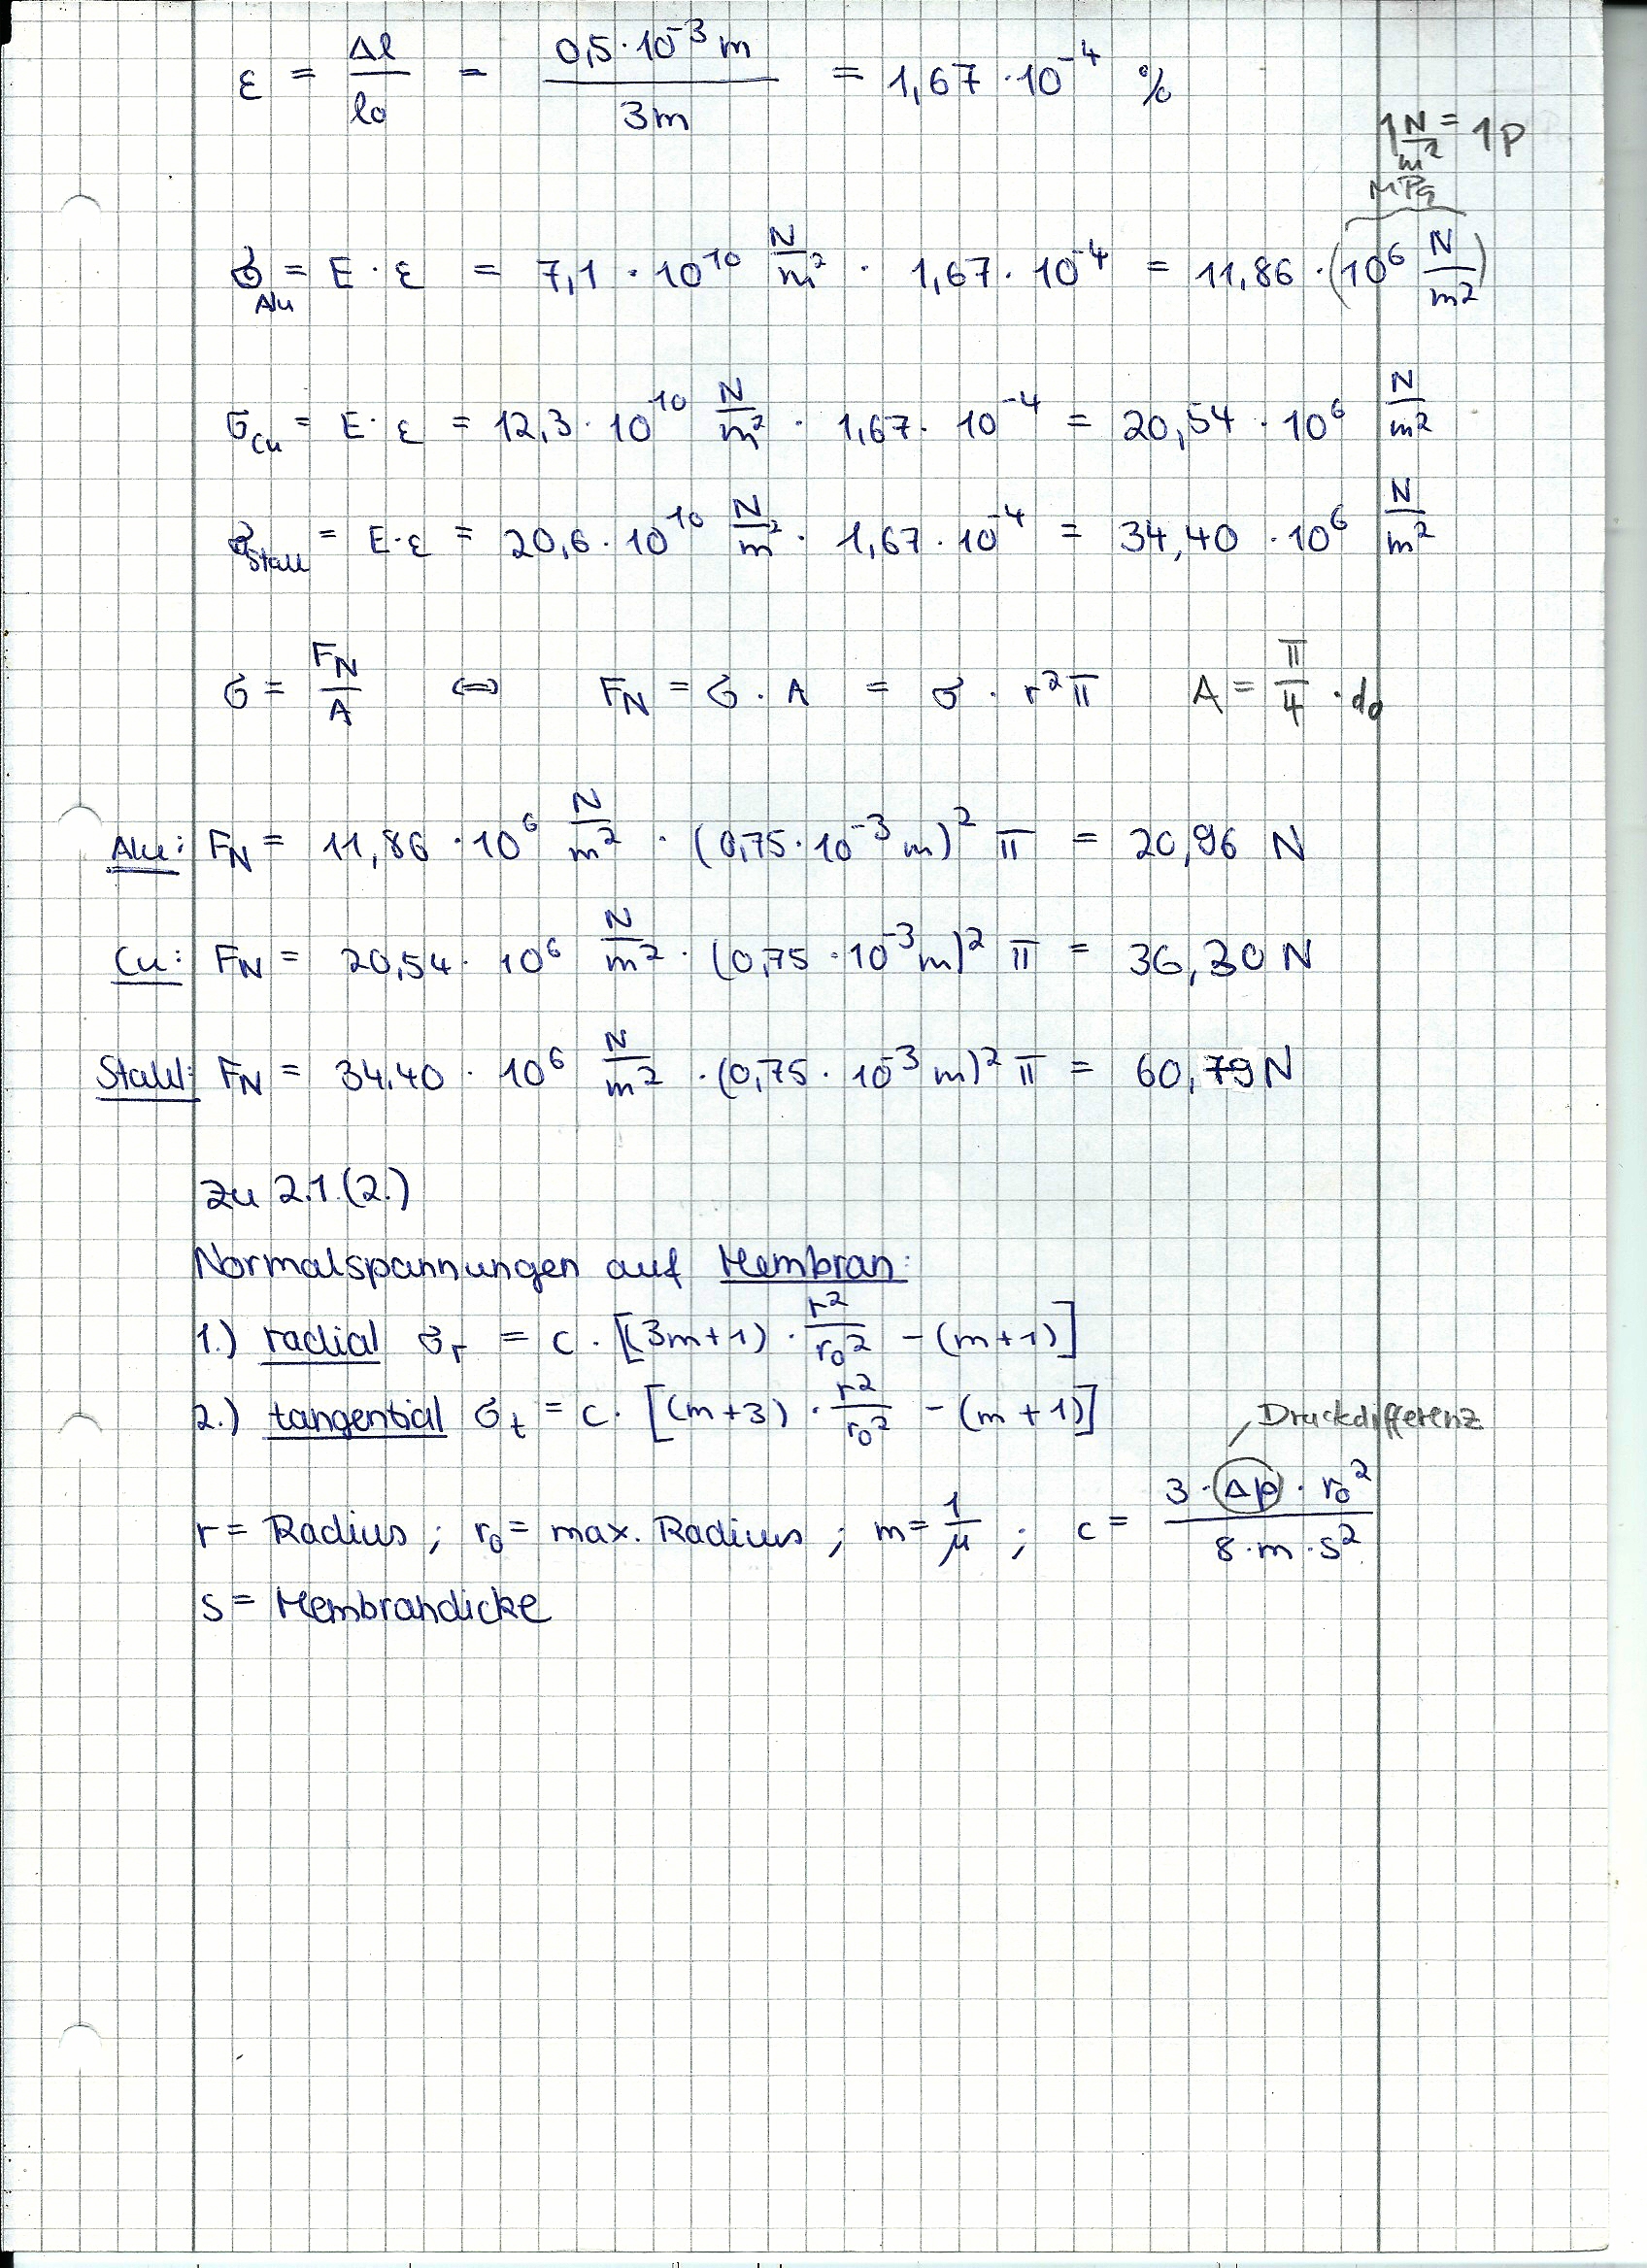 ε = Δl/l₀ = 0,5·10⁻³ m / 3m = 1,67·10⁻⁴ %
1 N/m² = 1P
MPa
σ_Alu = E·ε = 7,1·10¹⁰ N/m² · 1,67·10⁻⁴ = 11,86·(10⁶ N/m²)
σ_Cu = E·ε = 12,3·10¹⁰ N/m² · 1,67·10⁻⁴ = 20,54·10⁶ N/m²
σ_Stahl = E·ε = 20,6·10¹⁰ N/m² · 1,67·10⁻⁴ = 34,40·10⁶ N/m²
σ = F_N/A ⇔ F_N = σ·A = σ·r²π A = π/4·d₀
Alu: F_N = 11,86·10⁶ N/m² · (0,75·10⁻³ m)² π = 20,96 N
Cu: F_N = 20,54·10⁶ N/m² · (0,75·10⁻³ m)² π = 36,30 N
Stahl: F_N = 34,40·10⁶ N/m² · (0,75·10⁻³ m)² π = 60,79 N
zu 2.1.(2.)
Normalspannungen auf Membran:
1.) radial σ_r = c·[(3m+1)·r²/r₀² - (m+1)]
2.) tangential σ_t = c·[(m+3)·r²/r₀² - (m+1)]
Druckdifferenz
r = Radius ; r₀ = max. Radius ; m = 1/μ ; c = 3·Δp·r₀² / 8·m·s²
s = Membrandicke